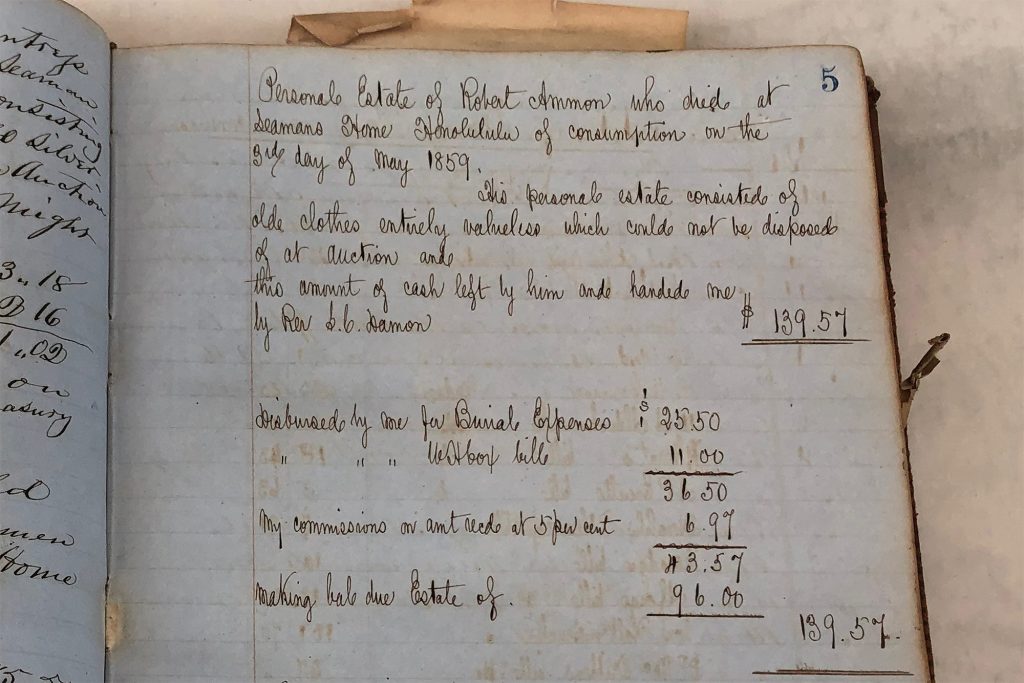 ntrys
Seaman
onsisting
d Silver
Auction
Might
3 " 18
16
1 " 02
on
asury
men
Home
5
Personal Estate of Robert Ammon who died at
Seamans Home Honolululu of consumption on the
3rd day of May 1859.
His personal estate consisted of
olde clothes entirely valueless which could not be disposed
of at auction and
this amount of cash left by him and handed me
by Rev S. C. Damon $ 139.57
Disbursed by me for Burial Expenses $ 25.50
" " " bill 11.00
36 50
My commissions on amt recd at 5 per cent 6.97
43.57
Making bal due Estate of. 96.00
139.57.